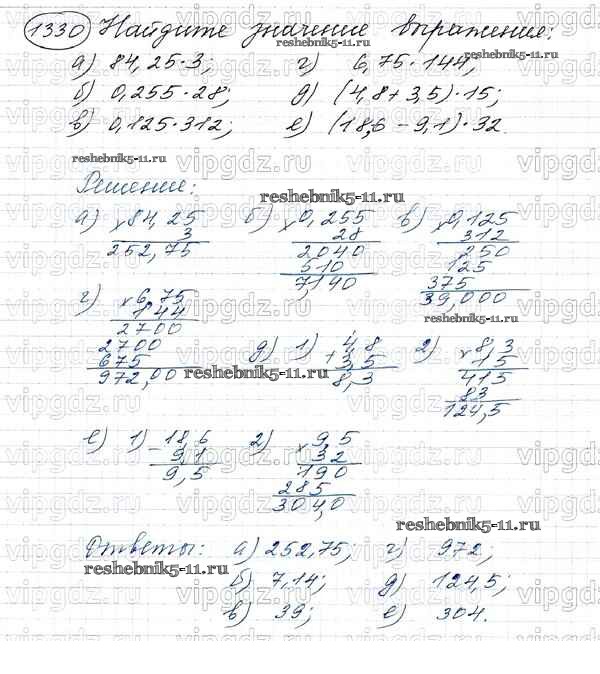 1330 Найдите значение выражения:
а) 84,25·3; г) 6,75·144;
б) 0,255·28; д) (4,8+3,5)·15;
в) 0,125·312; е) (18,6-9,1)·32.
Решение:
а) ×84,25 б) ×0,255 в) ×0,125
3 28 312
252,75 2040 250
510 125
7,140 375
39,000
г) ×6,75
144
2700
2700
675
972,00
д) 1) +4,8 2) ×8,3
3,5 15
8,3 415
83
124,5
е) 1) -18,6 2) ×9,5
9,1 32
9,5 190
285
304,0
Ответы: а) 252,75; г) 972;
б) 7,14; д) 124,5;
в) 39; е) 304.
reshebnik5-11.ru
vipgdz.ru